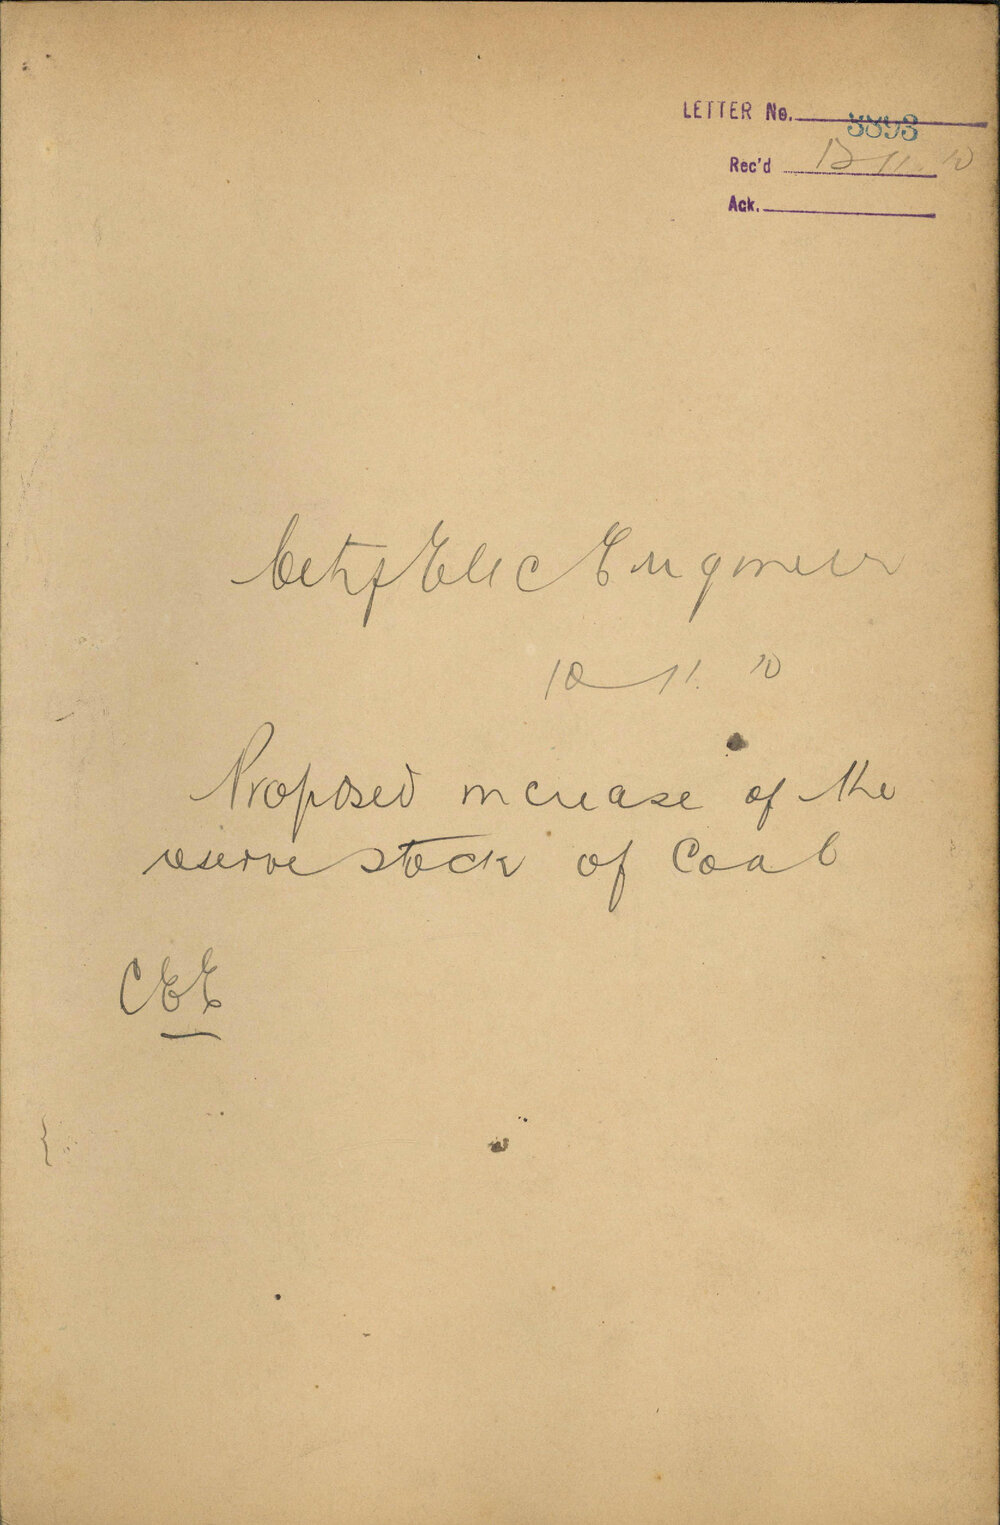 LETTER No. 3393
Rec'd 12 11 10
Ack.
City Elec Engineer
10 11. 10
Proposed increase of the
reserve stock of Coal
CEE